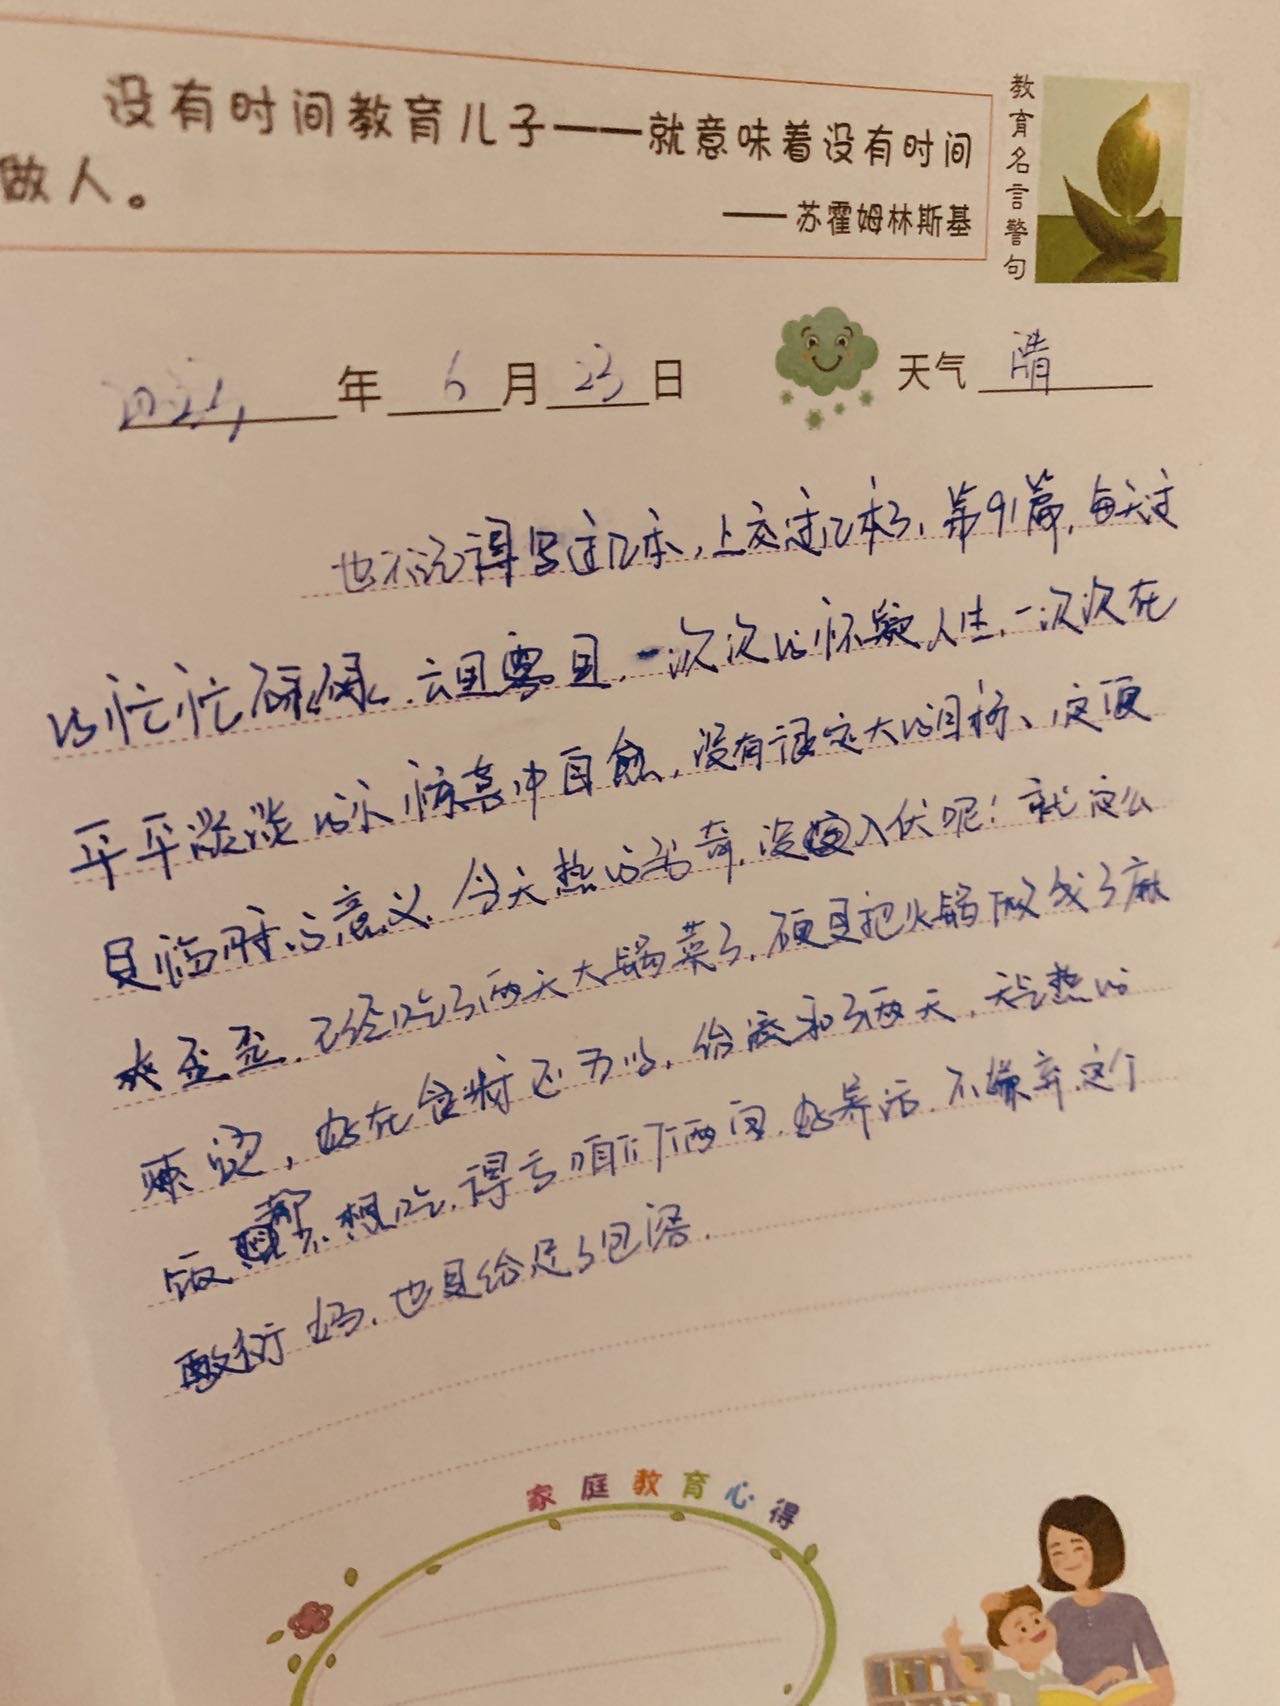 没有时间教育儿子——就意味着没有时间
做人。
——苏霍姆林斯基
教育名言警句
年 6 月 23 日 天气 晴
也不记得写过几本，上交过几本了，第91篇，每天过
的忙忙碌碌，一次次的怀疑人生，一次次在
平平淡淡的小惊喜中自愈，没有很宏大的目标、这便
是临时的意义，今天热的出奇，没入伏呢！就这么
已经吃了两天大锅菜了，硬是把火锅做成了麻
辣烫，好在食材还可以，给凑和了两天，天气热的
饭都不想吃，得亏咱下两回，好养活，不嫌弃这个
敷衍妈，也是给足了包容．
家庭教育心得